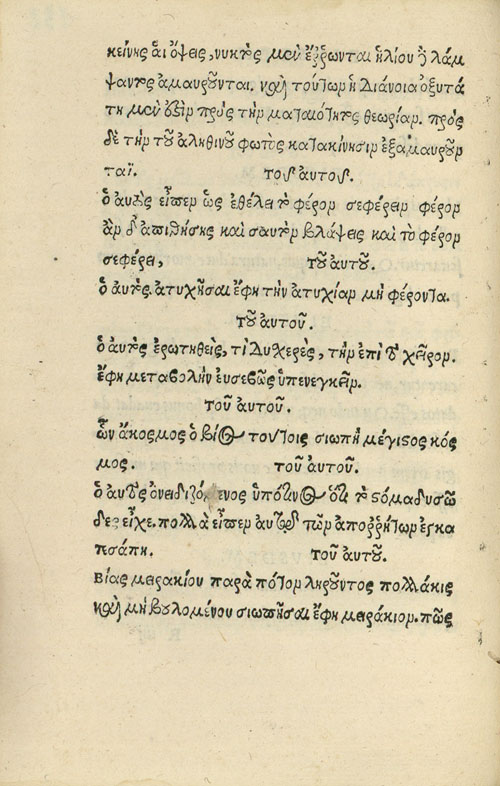 κείνης ἃι ὄψεις, νυκτὸς μὲν ἔῤῥωνται ἡλίου δὲ λάμ
ψαντος ἀμαυροῦνται. καὶ τούτωμ ἡ Διάνοια ὀξυτά
τη μὲν ὖσιμ πρὸς τὴμ ματαιότητος θεωρίαμ. πρὸς
δὲ τὴμ τοῦ ἀληθινοῦ φωτὸς κατακίνησιμ ἐξαμαυροῦμ
ται. τοῦ αυτοῦ.
ὁ αυτὸς εἶπεμ ὡς ἐθέλει τὸ φέρομ σεφέρειμ φέρομ
ἂμ δ' απιθήσης καὶ σαυτὸμ βλάψεις καὶ τὸ φέρομ
σεφέρει, τοῦ αυτοῦ.
ὁ αυτὸς. ατυχῆσαι ἔφη τὴν ατυχίαμ μὴ φέροντα.
τοῦ αυτοῦ.
ὁ αυτὸς ἐρωτηθεὶς, τί Δυχερὲς, τὴμ ἐπὶ τὸ χεῖρομ.
ἔφη μεταβολὴν ευσεβῶς ὑπενεγκεῖμ.
τοῦ αυτοῦ.
ὧν ἄκοσμος ὁ βίος τούτοις σιωπὴ μέγιςος κόσ
μος. τοῦ αυτοῦ.
ὁ αυτὸς ὀνειδιζόμενος ὑπό τινος ὅτι τὸ ςόμα δυσῶ
δες εἶχε. πολλὰ εἶπεμ αυτῷ τῶμ απορρήτωμ ἐγκα
τεσάπη. τοῦ αυτοῦ.
βίας μειρακίου παρὰ πότομ ληροῦντος πολλάκις
καὶ μὴ βουλομένου σιωπῆσαι ἔφη μειράκιομ. πῶς